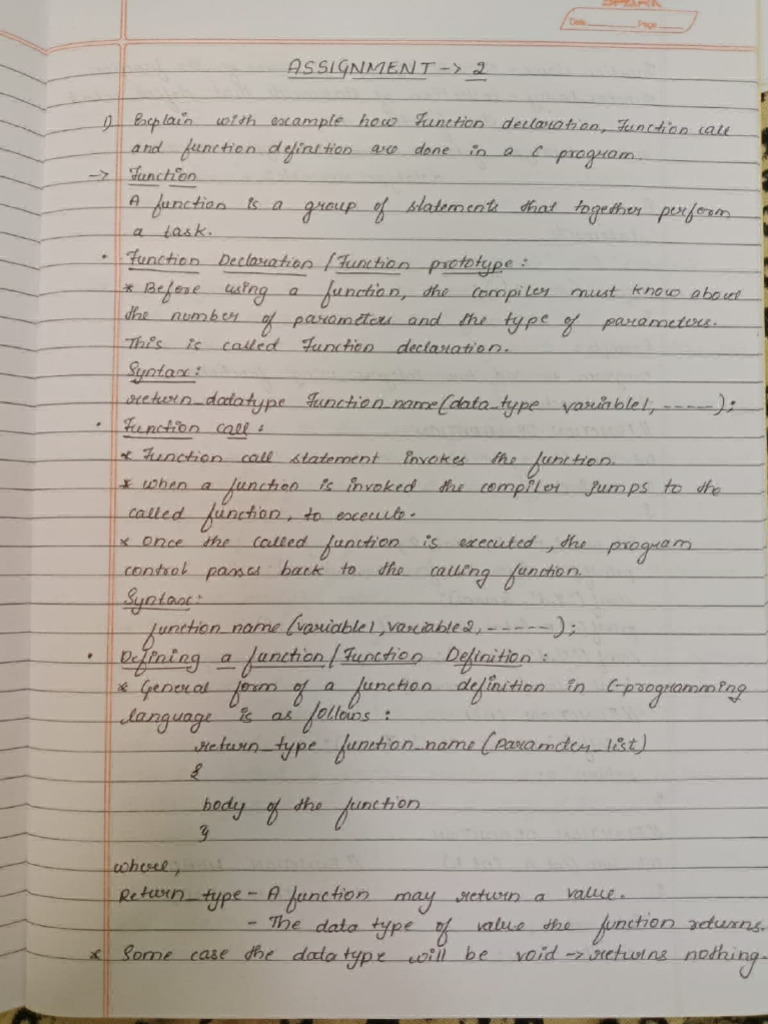 SPARK
Date Page
ASSIGNMENT -> 2
1) Explain with example how Function declaration, Function call
and function definition are done in a C program.
-> Function
A function is a group of statements that together perform
a task.
• Function Declaration / Function prototype :
* Before using a function, the compiler must know about
the number of parameters and the type of parameters.
This is called Function declaration.
Syntax :
return_datatype Function_name (data_type variable1, -----);
• Function call :
* Function call statement invokes the function.
* when a function is invoked the compiler jumps to the
called function, to execute.
* Once the called function is executed, the program
control passes back to the calling function.
Syntax:
function_name (variable1, variable2, ------);
• Defining a function / Function Definition :
* General form of a function definition in C-programming
language is as follows :
return_type function_name (Parameter_list)
{
body of the function
}
where,
Return_type - A function may return a value.
- The data type of value the function returns.
* Some case the data type will be void -> returns nothing.